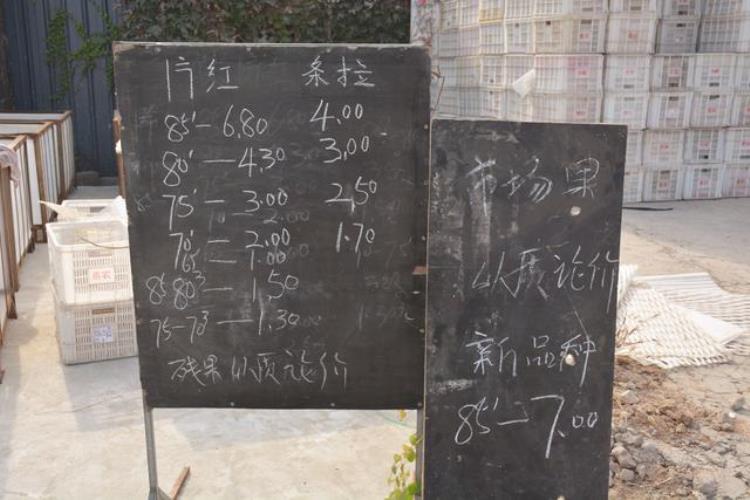 片红 条拉
85'—6.80 4.00
80'—4.30 3.00
75'—3.00 2.50
70'—2.00 1.70
65'—1.00
85 80³—1.50
75-70³—1.30
残果以质论价
市场果
以质论价
新品种
85'—7.00